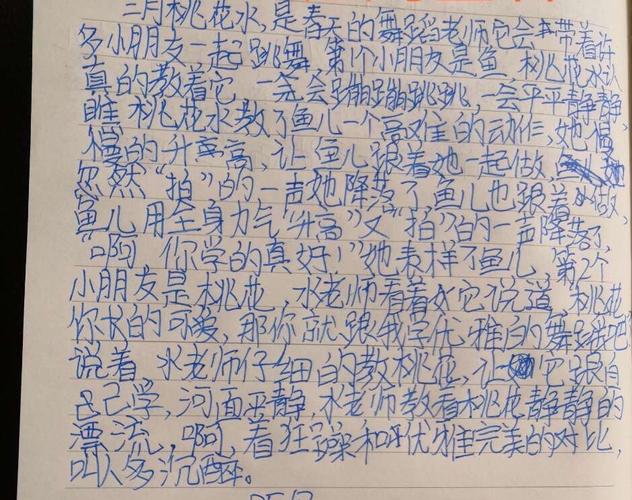 三月桃花水,是春天的舞蹈老师它会带着许
多小朋友一起跳舞,第1个小朋友是鱼,桃花水认
真的教着它,一会会蹦蹦跳跳,会平平静静
桃花水教了鱼儿一个高难的动作,她慢
慢的升高,让鱼儿跟着她一起做
忽然"拍"的一声她降落了鱼儿也跟着做,
鱼儿用全身力气"升高"又"拍"的一声降落了,
"啊,你学的真好!"她表样了鱼儿,第2个
小朋友是桃花,水老师看着它说道,桃花
你长的可爱,那你就跟我学优雅的舞蹈吧"
说着 水老师仔细的教桃花,让它跟自
己学,河面平静,水老师教着桃花静静的
漂流,啊,着狂躁和优雅完美的对比,
叫人多沉醉。